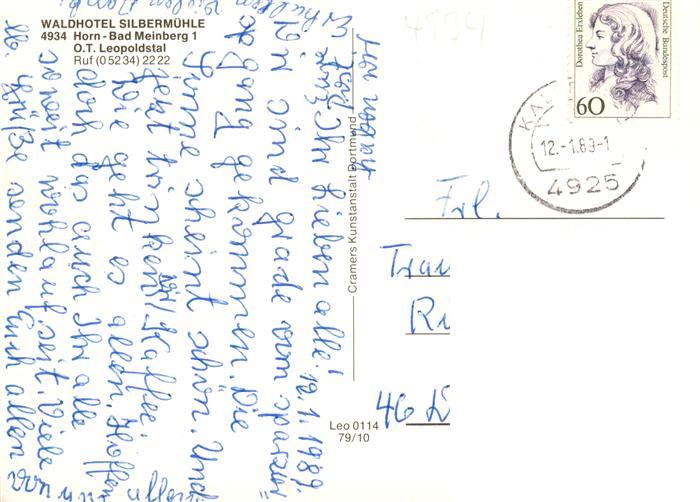 WALDHOTEL SILBERMÜHLE
4934 Horn - Bad Meinberg 1
O.T. Leopoldstal
Ruf (0 52 34) 22 22
12.1.1989.
Ihr Lieben alle!
Wir sind grade vom spazier
gang gekommen. Die
Sonne scheint schön. Und
jetzt trinken wir Kaffee.
Wie geht es allen. Hoffen
doch das auch Ihr alle
soweit wohlauf seit. Viele
lb. Grüße senden Euch allen
von uns allen
Cramers Kunstanstalt Dortmund
Leo 0114
79/10
4934
Dorothea Erxleben
Deutsche Bundespost
60
12.-1.89-1
4925
Frl.
Trau
Ri
46